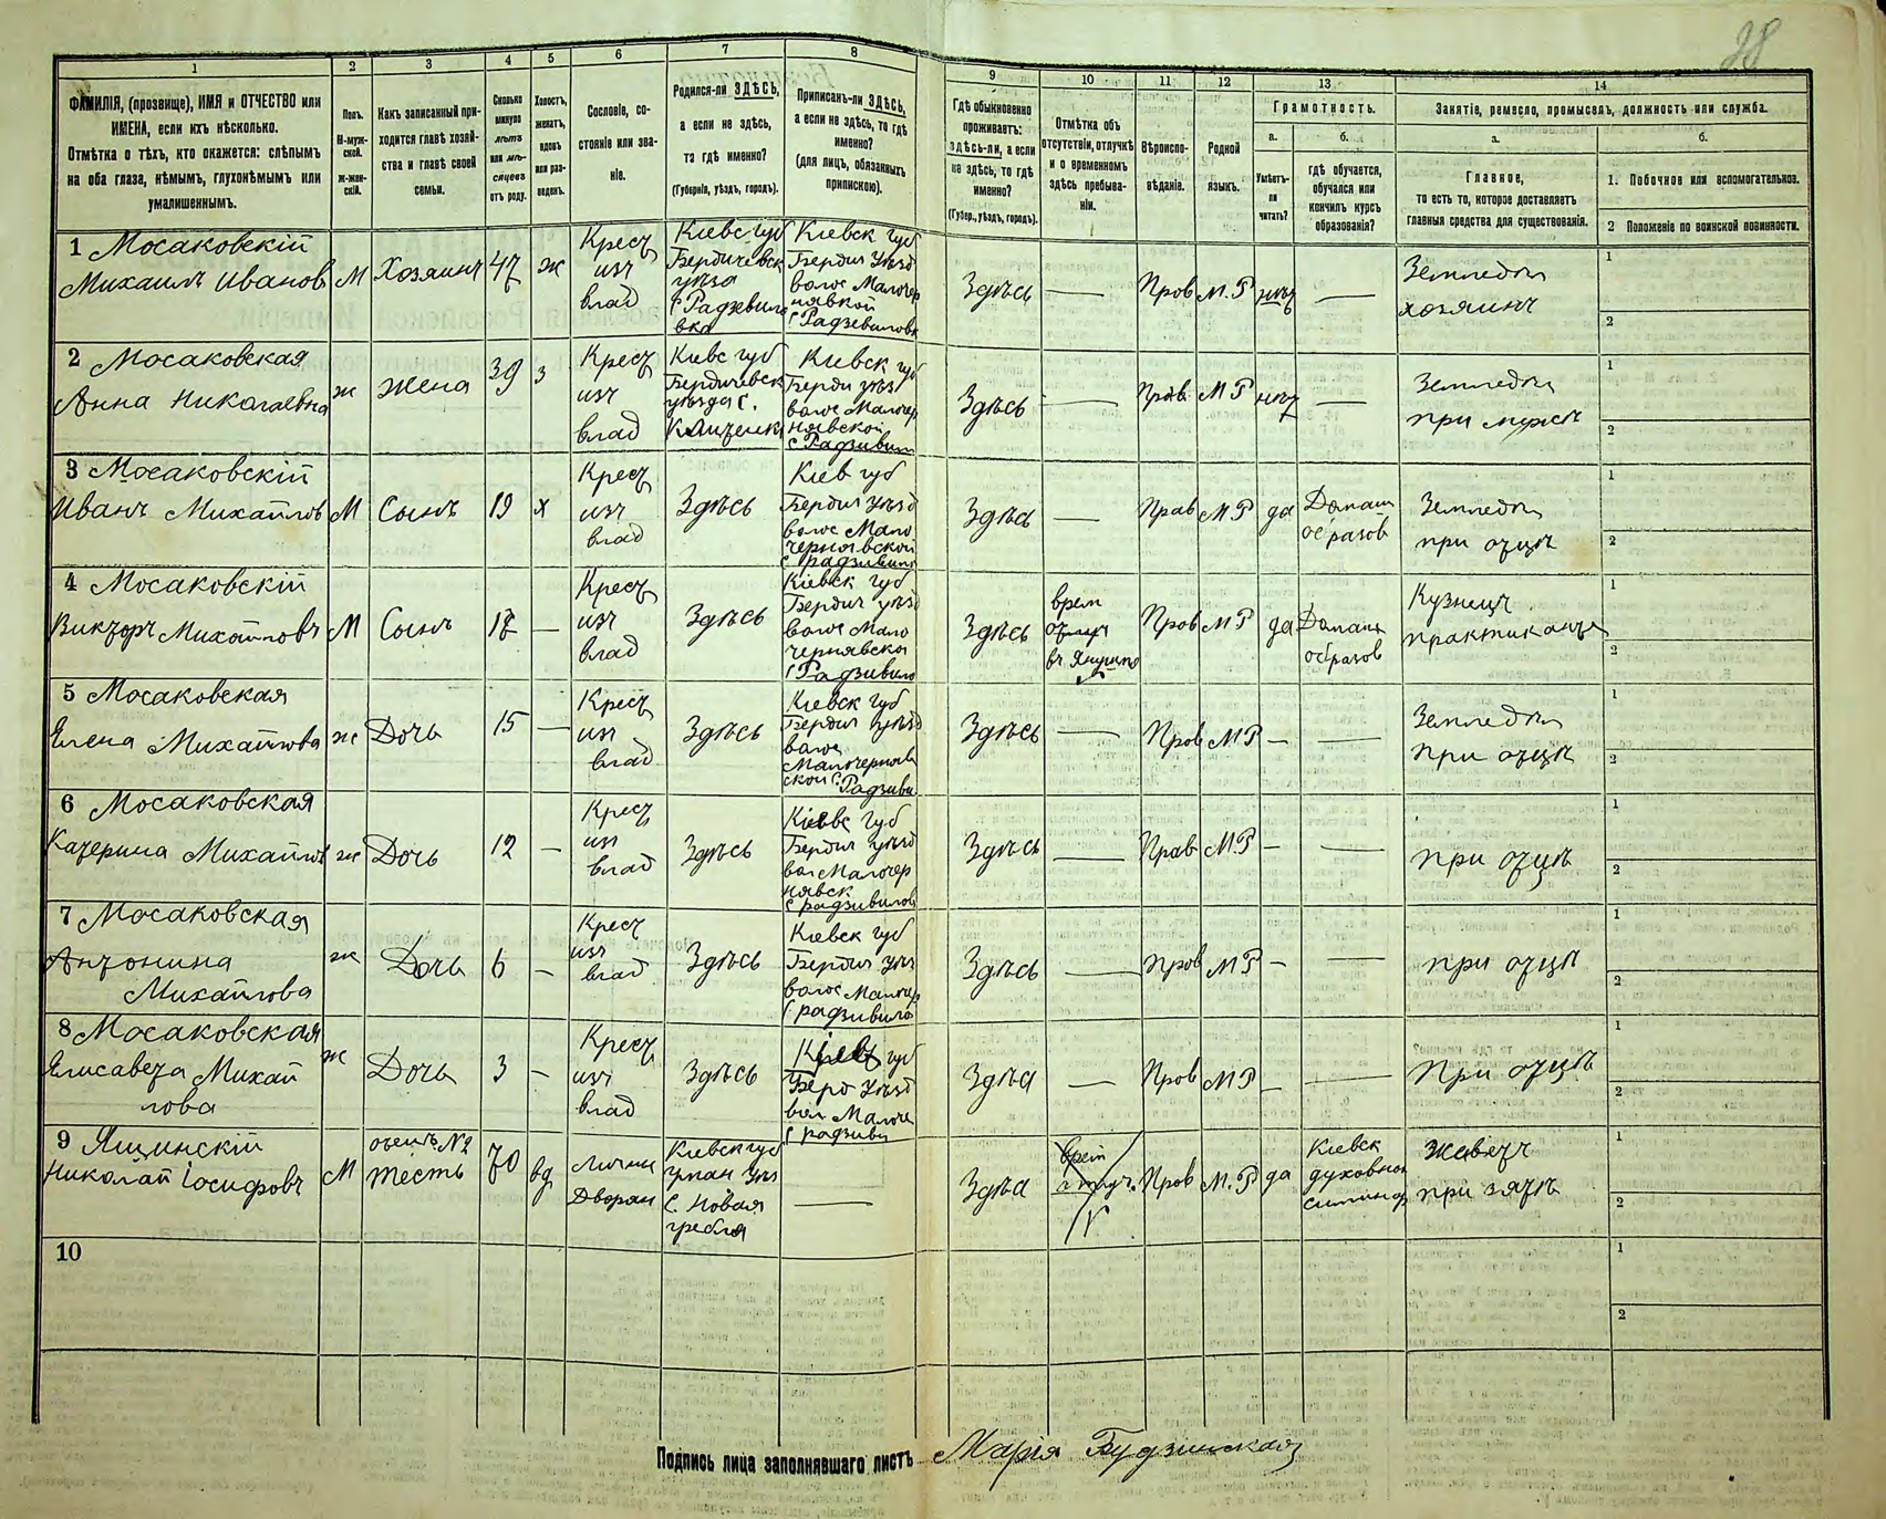 28
1
2
3
4
5
6
7
8
9
10
11
12
13
14
ФАМИЛІЯ, (прозвище), ИМЯ и ОТЧЕСТВО или
ИМЕНА, если ихъ нѣсколько.
Отмѣтка о тѣхъ, кто окажется: слѣпымъ
на оба глаза, нѣмымъ, глухонѣмымъ или
умалишеннымъ.
Полъ.
М-муж-
ской.
ж-жен-
скій.
Какъ записанный при-
ходится главѣ хозяй-
ства и главѣ своей
семьи.
Сколько
минуло
лѣтъ
или мѣ-
сяцевъ
отъ роду.
Холостъ,
женатъ,
вдовъ
или раз-
веденъ.
Сословіе, со-
стояніе или зва-
ніе.
Родился-ли ЗДѢСЬ,
а если не здѣсь,
то гдѣ именно?
(Губернія, уѣздъ, городъ).
Приписанъ-ли ЗДѢСЬ,
а если не здѣсь, то гдѣ
именно?
(для лицъ, обязанныхъ
припискою).
Гдѣ обыкновенно
проживаетъ:
здѣсь-ли, а если
не здѣсь, то гдѣ
именно?
(Губер., уѣздъ, городъ).
Отмѣтка объ
отсутствіи, отлучкѣ
и о временномъ
здѣсь пребыва-
ніи.
Вѣроиспо-
вѣданіе.
Родной
языкъ.
Грамотность.
а.
б.
Умѣетъ-
ли
читать?
гдѣ обучается,
обучался или
кончилъ курсъ
образованія?
Занятіе, ремесло, промыселъ, должность или служба.
а.
б.
Главное,
то есть то, которое доставляетъ
главныя средства для существованія.
1. Побочное или вспомогательное.
2 Положеніе по воинской повинности.
1 Мосаковскій
Михаилъ Иванов
М
Хозяинъ
47
ж
Крест
изъ
влад
Кіевс губ
Бердичевск
уѣзда
С Радзевило
вка
Кіевск губ
Бердич Уѣзд
волос Малочер
нявкой
С Радзевиловк
Здѣсь
—
Прав
М.Р
нѣт
—
Земледѣл
хозяинъ
1
2
2 Мосаковская
Анна Николаевна
ж
жена
39
з
Крест
изъ
влад
Кіевс губ
Бердичевск
уѣзда С.
Кіевск губ
Берди уѣзд
волос Малочер
нявской
С Радзивил
Здѣсь
—
Прав
М Р
нѣт
—
Земледѣл
при мужѣ
1
2
3 Мосаковскій
Иванъ Михайлов
М
Сынъ
19
х
Крест
изъ
влад
Здѣсь
Кіев губ
Бердич Уѣзд
волос Мало
чернявской
С радзивил
Здѣсь
—
Прав
М Р
да
Домаш
образов
Земледѣл
при отцѣ
1
2
4 Мосаковскій
Викторъ Михайловъ
М
Сынъ
17
—
Крест
изъ
влад
Здѣсь
Кіевск губ
Бердич уѣзд
волос Мало
чернявско
С Радзивило
Здѣсь
врем
отлуч
въ
Прав
М Р
да
Домаш
образов
Кузнецъ
практикант
1
2
5 Мосаковская
Елена Михайлова
ж
Дочь
15
—
Крест
изъ
влад
Здѣсь
Кіевск губ
Бердич уѣзд
волос
Малочерняв
ской С
Радзиви
Здѣсь
—
Прав
М Р
—
—
Земледѣл
при отцѣ
1
2
6 Мосаковская
Катерина Михайлов
ж
Дочь
12
—
Крест
изъ
влад
Здѣсь
Кіевс губ
Бердич уѣзд
вол Малочер
нявск
С радзивилов
Здѣсь
—
Прав
М.Р
—
—
при отцѣ
1
2
7 Мосаковская
Антонина
Михайлова
ж
Дочь
6
—
Крест
изъ
влад
Здѣсь
Кіевск губ
Бердич Уѣз
волос Малочер
С радзивило
Здѣсь
—
Прав
М Р
—
—
при отцѣ
1
2
8 Мосаковская
Елисавета Михай
лова
ж
Дочь
3
—
Крест
изъ
влад
Здѣсь
Кіев губ
Берд Уѣзд
вол Малоче
С радзиви
Здѣсь
—
Прав
М Р
—
—
При отцѣ
1
2
9 Ящинскій
Николай Іосифовъ
М
отецъ №2
тесть
70
вд
Лични
Дворян
Кіевск губ
уман Уѣз
С. Новая
гребля
—
Здѣсь
врем
отлуч.
Прав
М.Р
да
Кіевск
духовной
семинар
живетъ
при зятѣ
1
2
10
1
2
Подпись лица заполнявшаго листъ Марія Будзинская